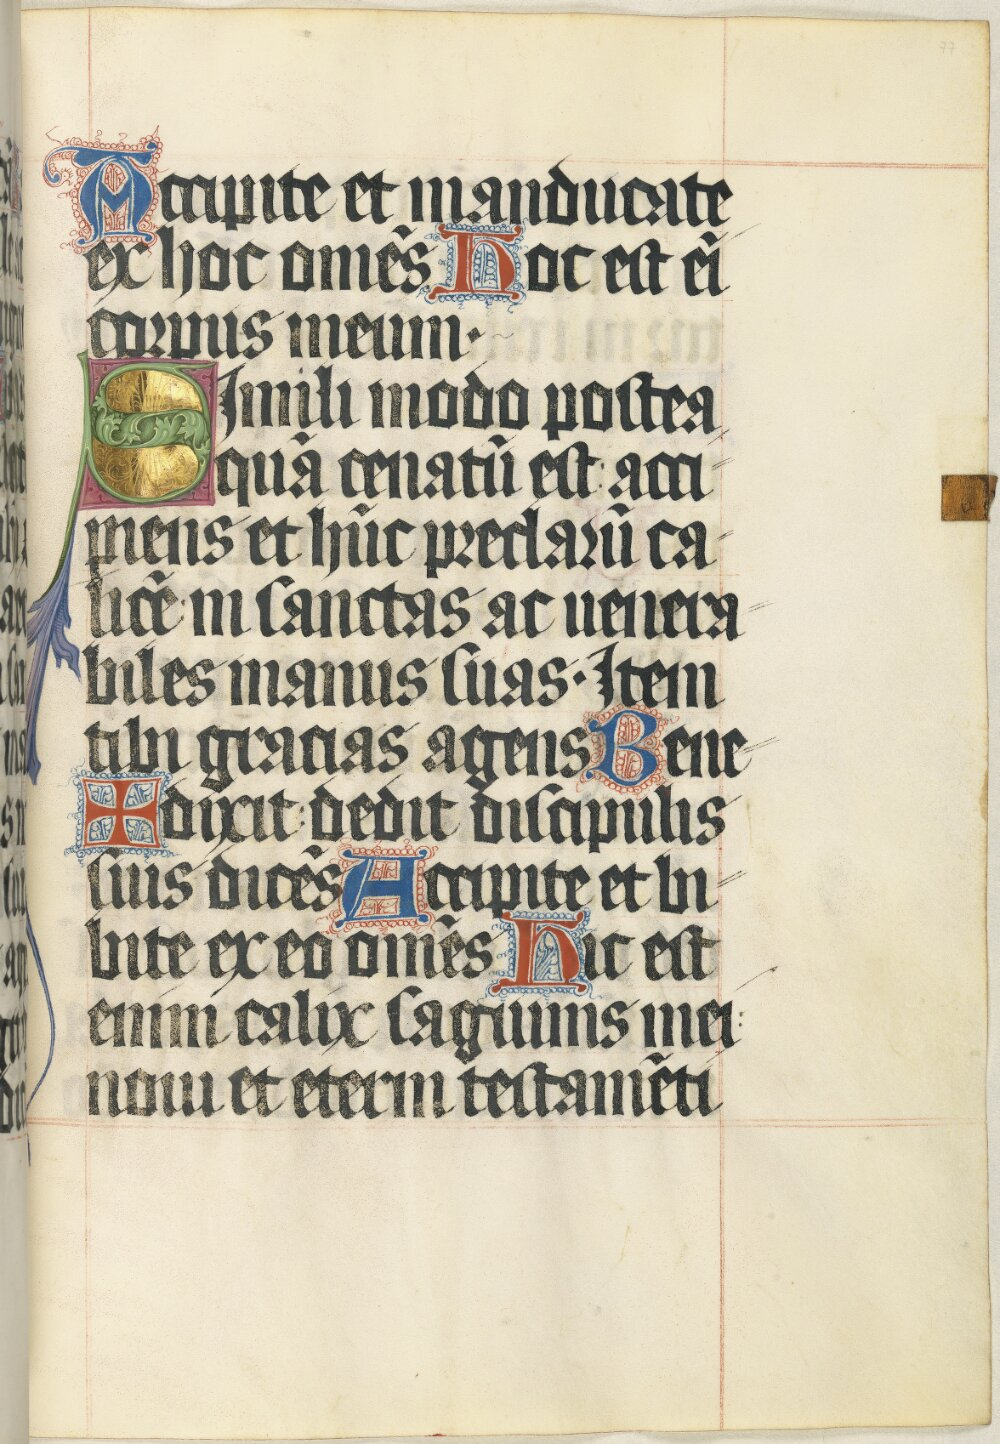 Accipite et manducate
ex hoc om̄es Hoc est eī
corpus meum·
Simili modo postea
quā cenatū est: acci-
piens et hūc preclarū ca-
licē: in sanctas ac uenera-
biles manus suas· Item
tibi gracias agens Bene-
✠ dixit: dedit discipulis
suis dicēs Accipite et bi-
bite ex eo om̄es Hic est
enim calix sāguinis mei:
noui et eterni testamēti
77